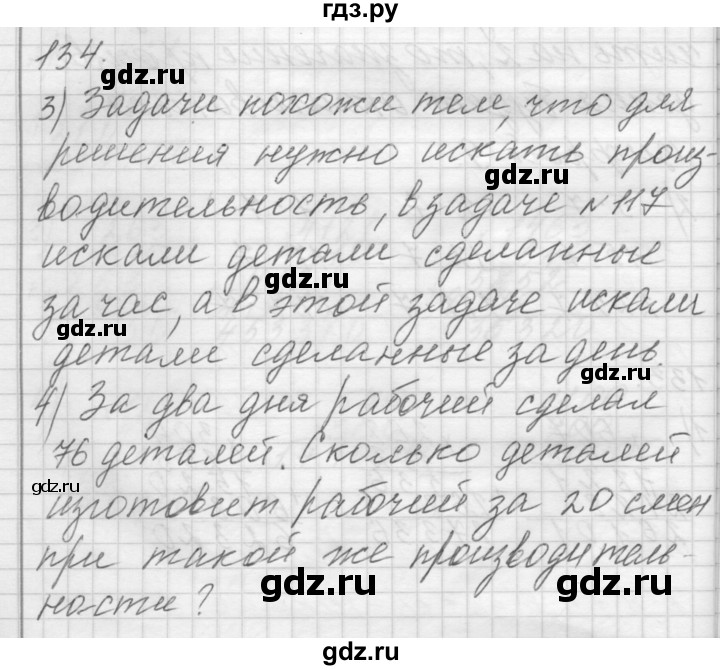 гдз.ру
134.
gdz.ru
3) Задачи похожи тем, что для
gdz.ru
решения нужно искать произ-
gdz.ru
водительность, в задаче №117
искали детали сделанные
за час, а в этой задаче искали
gdz.ru
gdz.ru
детали сделанные за день.
gdz.ru
4) За два дня рабочий сделал
76 деталей. Сколько деталей
gdz.ru
изготовит рабочий за 20 смен
при такой же производитель-
gdz.ru
gdz.ru
ности?
gdz.ru